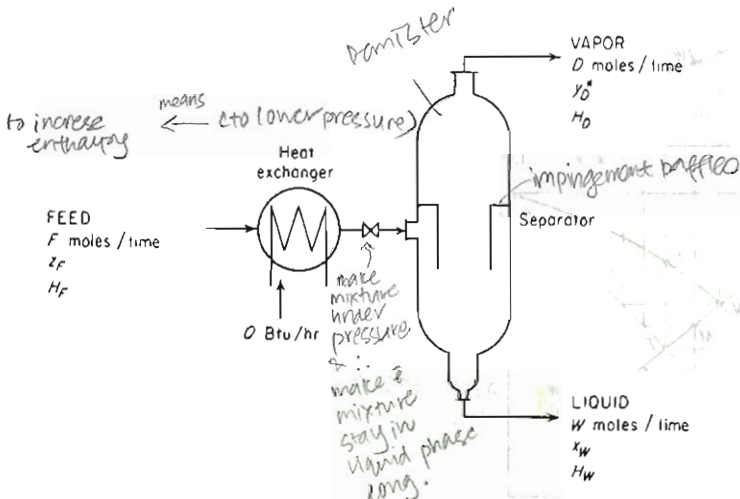 Demister
VAPOR
D moles / time
y_D*
H_D
means
to increse ← (to lower pressure)
enthalpy
Heat
exchanger
impingement baffles
Separator
FEED
F moles / time
z_F
H_F
Q Btu/hr
make
mixture
under
pressure
& ∴
make
mixture
stay in
liquid phase
long.
LIQUID
W moles / time
x_W
H_W